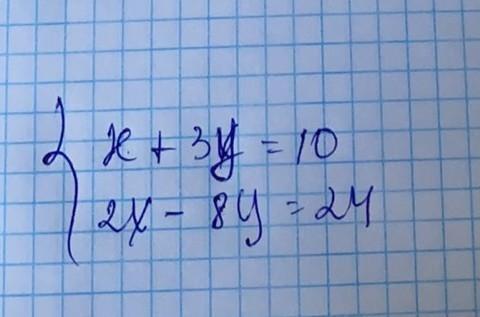 x + 3y = 10
2x - 8y = 24